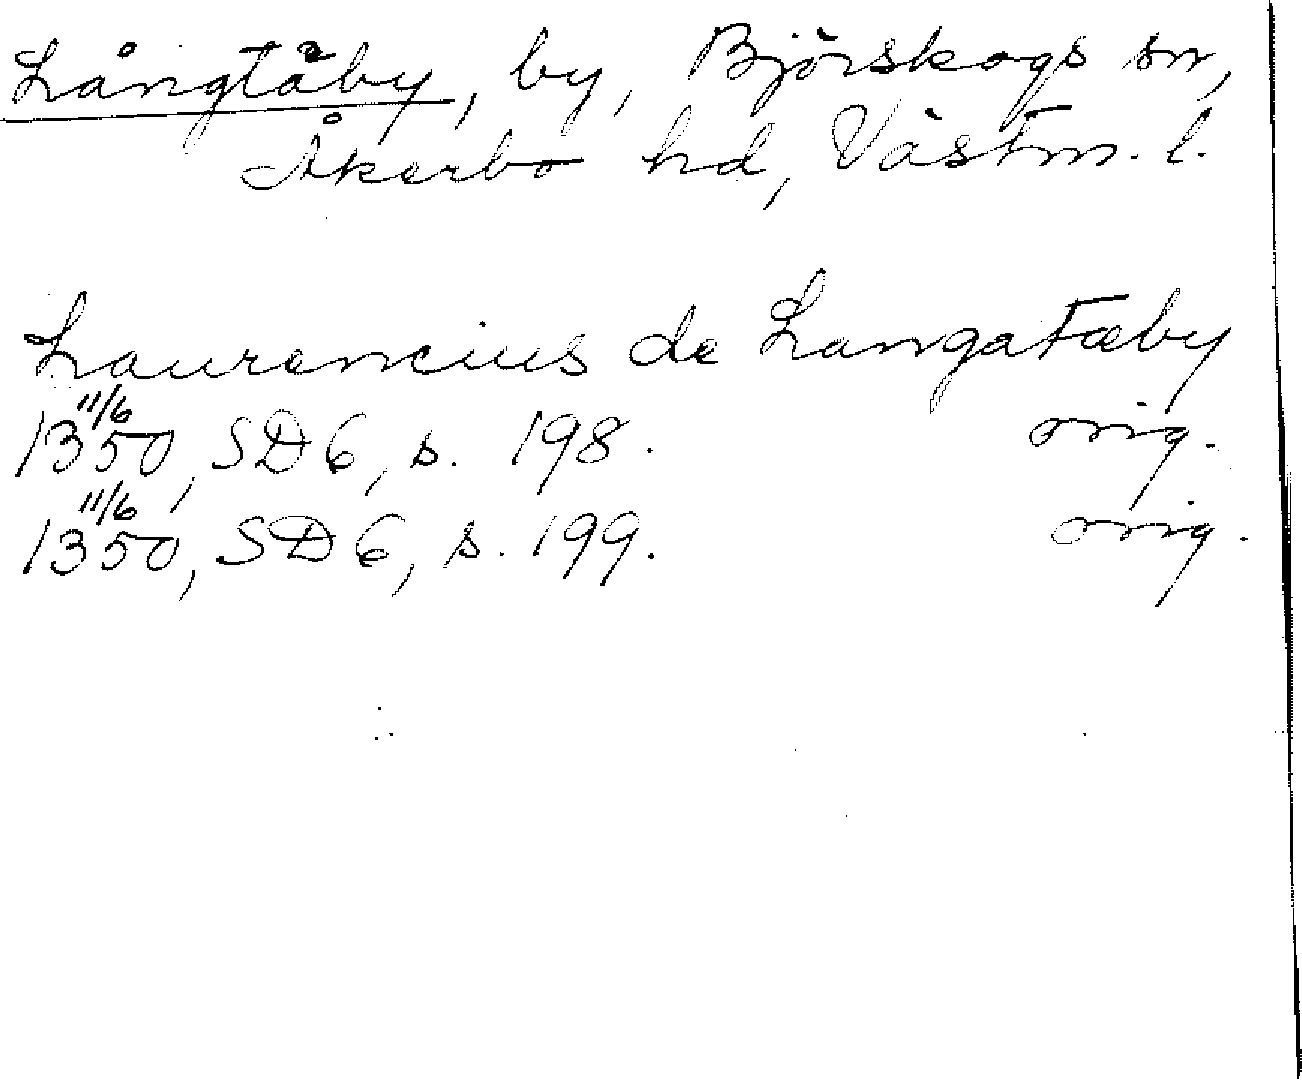 Långtäby, by, Björskogs sn,
Åkerbo hd, Västm. l.
Laurencius de Langatæby
11/6
1350, SD 6, s. 198. orig.
11/6
1350, SD 6, s. 199. orig.